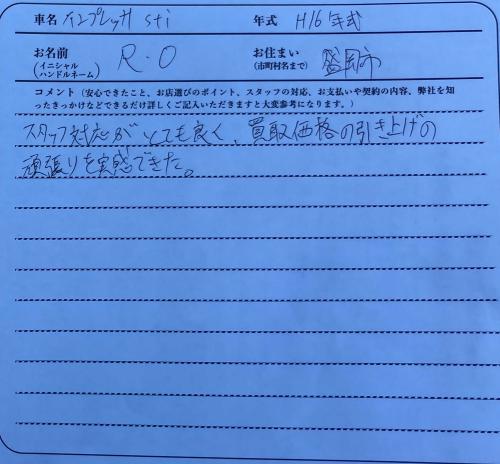 車名 インプレッサ sti 年式 H16年式
お名前 (イニシャル ハンドルネーム) R.O お住まい (市町村名まで) 盛岡市
コメント(安心できたこと、お店選びのポイント、スタッフの対応、お支払いや契約の内容、弊社を知
ったきっかけなどできるだけ詳しくご記入いただきますと大変参考になります。)
スタッフ対応がとても良く、買取価格の引き上げの
頑張りを実感できた。